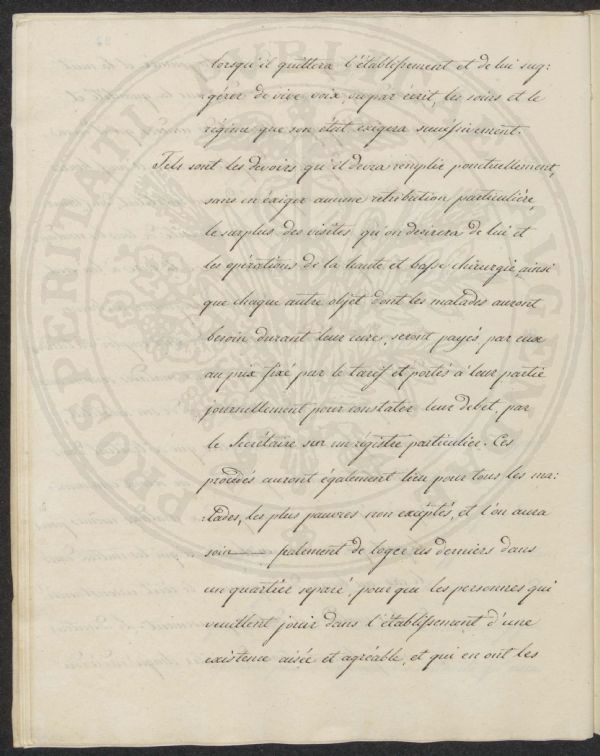 lorsqu'il quittera l'établissement et de lui sug:
gérer de vive voix, ou par écrit, les soins et le
régime que son état exigera successivement.
Tels sont les devoirs qu'il devra remplir ponctuellement,
sans en éxiger aucune retribution particulière,
le surplus des visites qu'on desirera de lui et
les opérations de la haute et basse chirurgie, ainsi
que chaque autre objet dont les malades auront
besoin durant leur cure, seront payés par eux
au prix fixé par le tarif et portés à leur partie
journellement pour constater leur debet, par
le Secrétaire sur un régistre particulier. Ces
procédés auront également lieu pour tous les ma:
lades, les plus pauvres non exeptés, et l'on aura
soin palement de loger ces derniers dans
un quartier separé, pour que les personnes qui
veuillent jouir dans l'établissement d'une
existence aisée et agréable, et qui en ont les
PROSPERITATI PUBLI